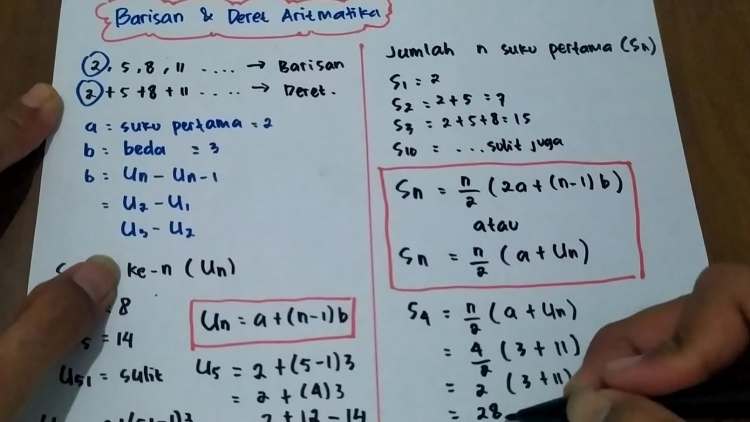 Barisan & Deret Aritmatika
2, 5, 8, 11 .... → Barisan
2 + 5 + 8 + 11 .... → Deret.
a = suku pertama = 2
b = beda = 3
b = Un - Un-1
= U2 - U1
U3 - U2
ke-n (Un)
= 8
= 14
U51 = sulit
Un = a + (n-1) b
U5 = 2 + (5-1) 3
= 2 + (4) 3
2 + 12 = 14
Jumlah n suku pertama (Sn)
S1 = 2
S2 = 2+5 = 7
S3 = 2+5+8 = 15
S10 = ... sulit juga
Sn = n/2 (2a + (n-1) b)
atau
Sn = n/2 (a + Un)
S4 = n/2 (a + Un)
= 4/2 (3 + 11)
= 2 (3 + 11)
= 28